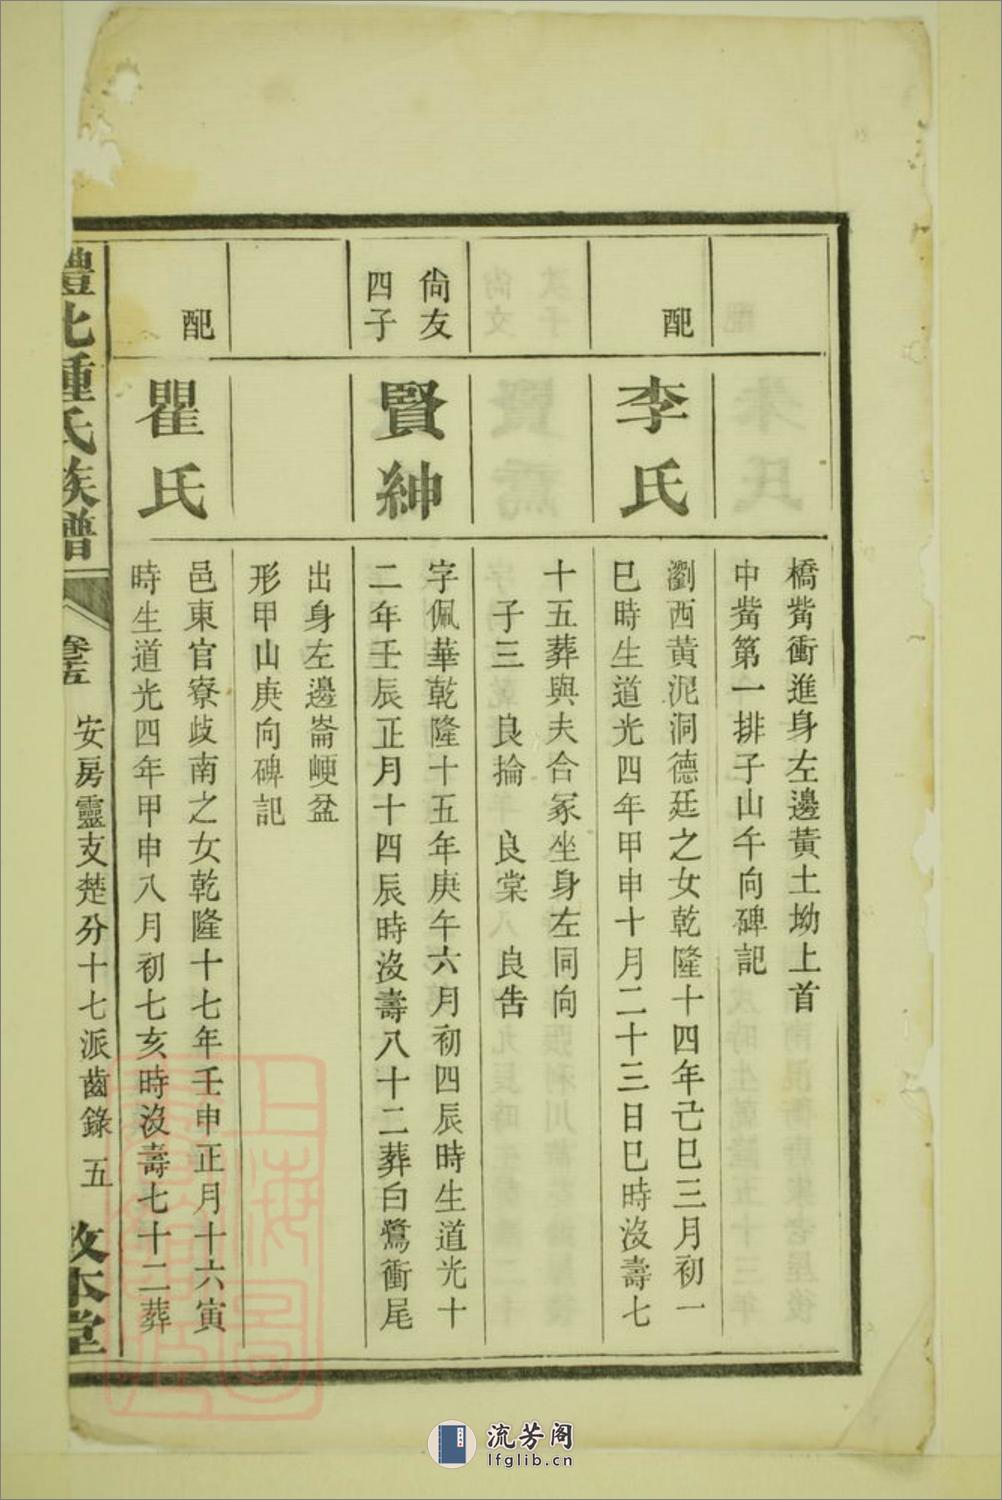 橋觜衝進身左邊黃土坳上首
中觜第一排子山午向碑記
配
李氏
瀏西黃泥洞德廷之女乾隆十四年己巳三月初一
巳時生道光四年甲申十月二十三日巳時沒壽七
十五葬與夫合冢坐身左同向
子三 良掄 良棠 良告
尙友
四子
賢紳
字佩華乾隆十五年庚午六月初四辰時生道光十
二年壬辰正月十四辰時沒壽八十二葬白鷺衝尾
出身左邊崙崾盆
形甲山庚向碑記
配
瞿氏
邑東官寮歧南之女乾隆十七年壬申正月十六寅
時生道光四年甲申八月初七亥時沒壽七十二葬
北種氏族譜
卷五
安房靈支楚分十七派齒錄 五
本堂
上海圖
流芳阁
lfglib.cn